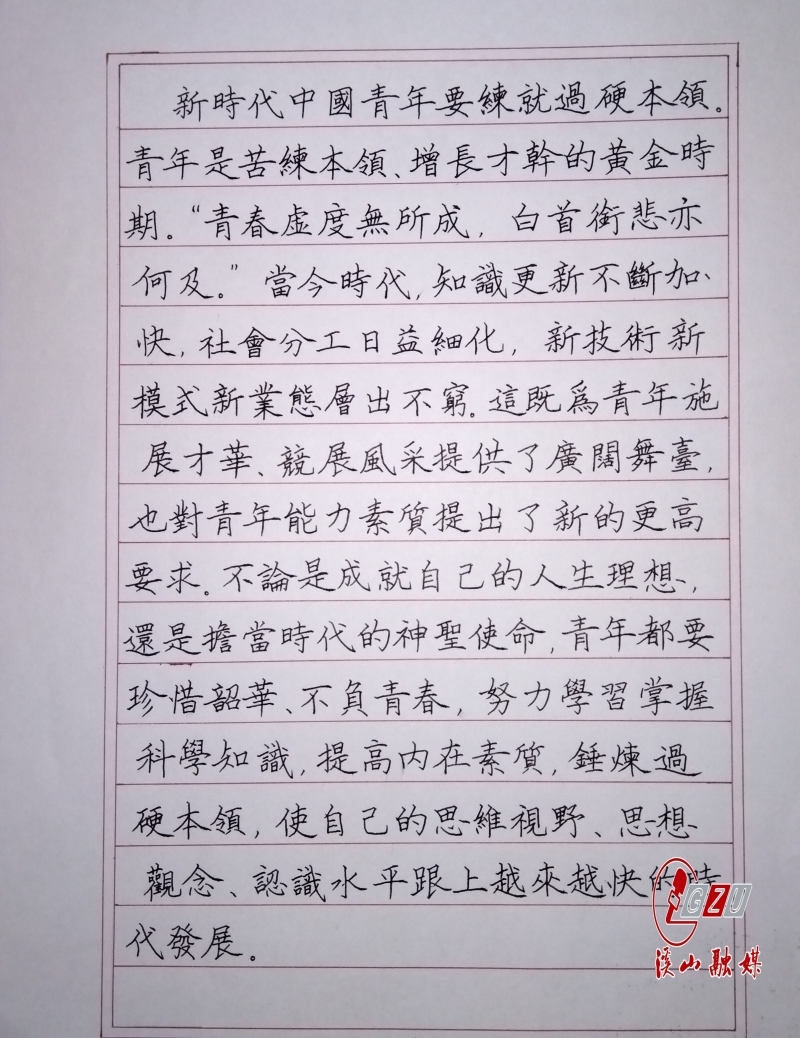 新時代中國青年要練就過硬本領。
青年是苦練本領、增長才幹的黃金時
期。“青春虛度無所成，白首銜悲亦
何及。”當今時代，知識更新不斷加
快，社會分工日益細化，新技術新
模式新業態層出不窮。這既爲青年施
展才華、競展風采提供了廣闊舞臺，
也對青年能力素質提出了新的更高
要求。不論是成就自己的人生理想，
還是擔當時代的神聖使命，青年都要
珍惜韶華、不負青春，努力學習掌握
科學知識，提高內在素質，錘煉過
硬本領，使自己的思維視野、思想
觀念、認識水平跟上越來越快的時
代發展。
GZU
溪山融媒